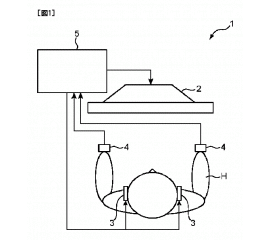 [図1]
1
5
2
4
4
H
3
3